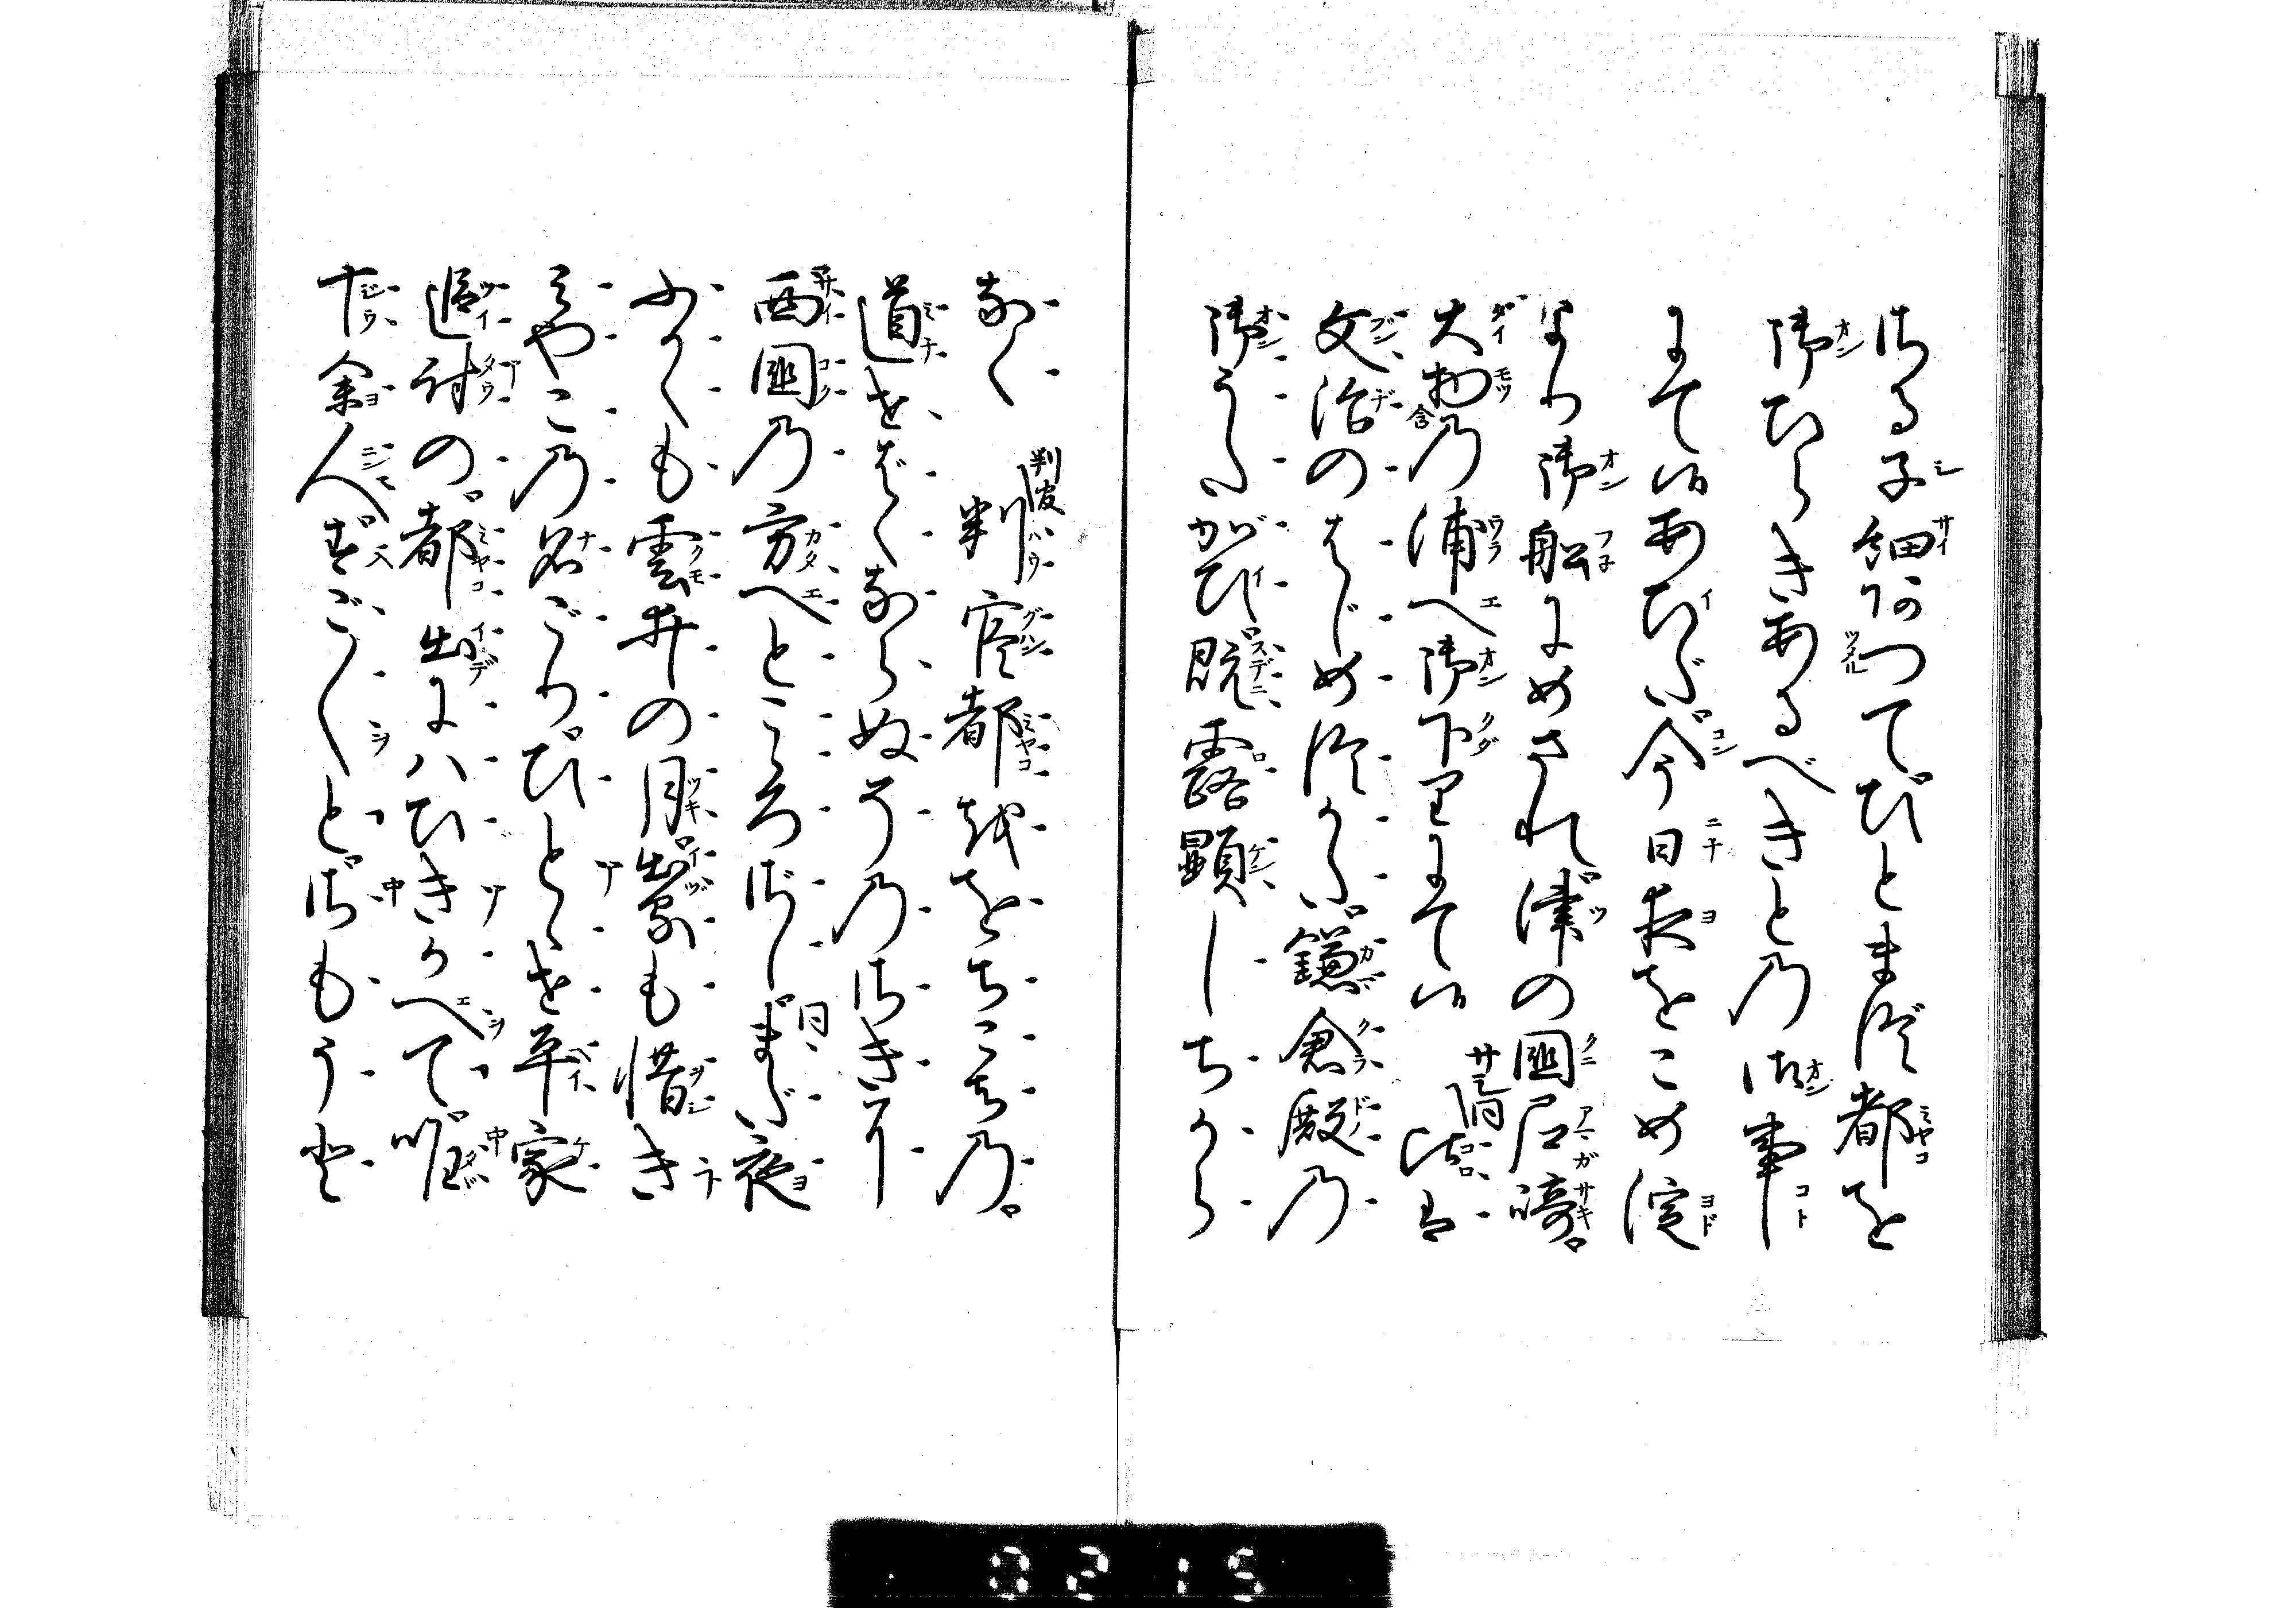 ける子細あつて。ひとまづ都を
御ひらきあるべきとの御事
にて候あひだ。今日夜をこめ淀
より御船にめされ。津の国尼崎。
大物の浦へ御下りにて候 サシ上 比は
文治のはじめつかた。鎌倉殿の
御うたがひ。既露顕しちから
なく 判官都をおちこちの。
道せばくならぬその さきに
西国の方へとこころざし。まだ夜
ふかくも雲井の月。出るも惜き
みやこの名ごり。ひととせ平家
追討の。都出にはひきかへて。唯
十余人。すごすごと。さもうと